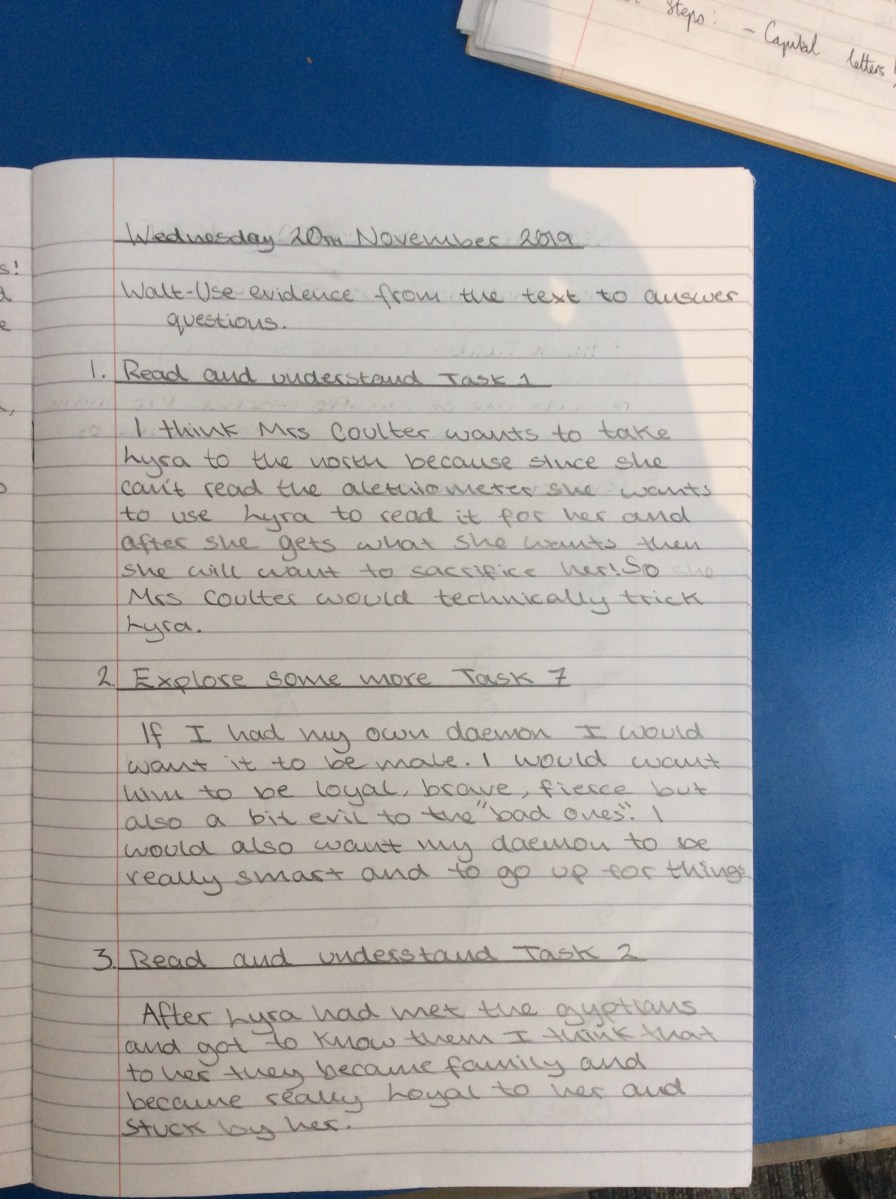 Steps: - Capital letters!
s!
Wednesday 20TH November 2019
Walt-Use evidence from the text to answer
questions.
1. Read and understand Task 1
I think Mrs Coulter wants to take
Lyra to the north because since she
can't read the alethiometer she wants
to use Lyra to read it for her and
after she gets what she wants then
she will want to sacrifice her! So she
Mrs Coulter would technically trick
Lyra.
2. Explore some more Task 7
If I had my own daemon I would
want it to be male. I would want
him to be loyal, brave, fierce but
also a bit evil to the "bad ones". I
would also want my daemon to be
really smart and to go up for things
3. Read and understand Task 2
After Lyra had met the gyptians
and got to know them I think that
to her they became family and
became really Loyal to her and
stuck by her.